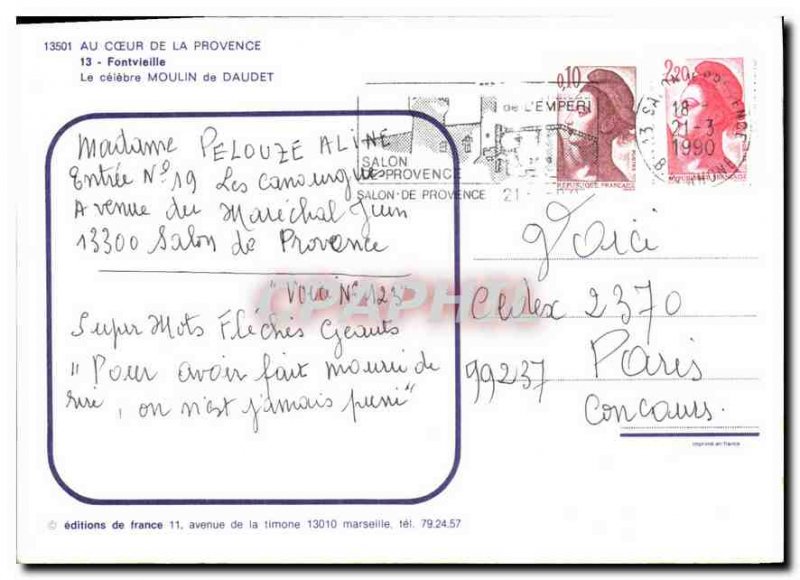 13501 AU CŒUR DE LA PROVENCE
13 - Fontvieille
Le célèbre MOULIN de DAUDET
Madame PELOUZE ALINE
Entrée N° 19 Les Canourgues
Avenue du Maréchal Juin
13300 Salon de Provence
"Voici N° 123"
Super Mots Fléchés Géants
"Pour avoir fait mourir de
rire, on n'est jamais puni"
de L'EMPERI
SALON
PROVENCE
SALON-DE PROVENCE
21
0,10
REPUBLIQUE FRANÇAISE
2,20
18-
21-3
1990
Voici
Cedex 2370
99237 Paris
Concours.
imprimé en france
CPAPHIL
© éditions de france 11, avenue de la timone 13010 marseille, tél. 79.24.57